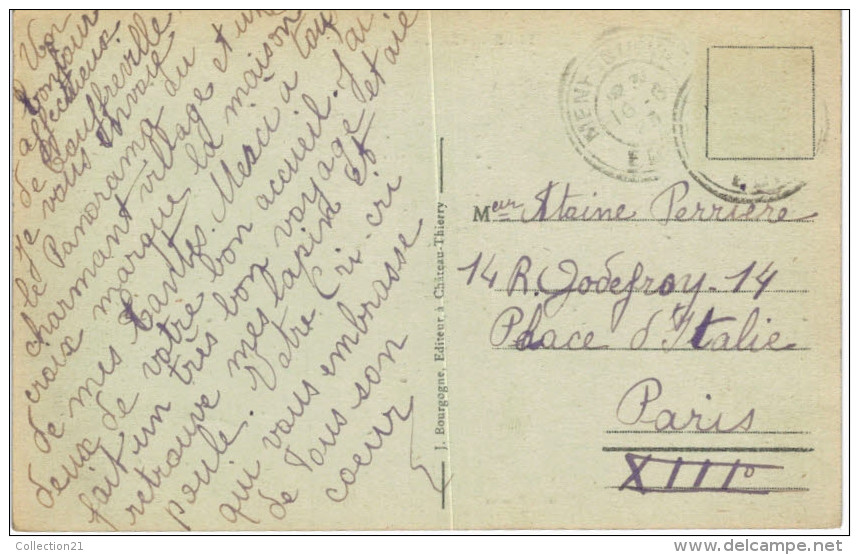 Vos
bonjour
affectueux
de Gouffreville
je vous envoie
le Panorama du
charmant village et une
croix marque la maison
de mes tantes. Merci à tous
deux de votre bon accueil. J'ai
fait un très bon voyage et aie
retrouvé mes lapins et
poule. Votre Cri-cri
qui vous embrasse
de tous son
coeur
J. Bourgogne, Editeur à Château-Thierry
Meur Perrière
14 R. Godefroy-14
Place d'Italie
Paris
XIIIe
Collection21
www.delcampe.net